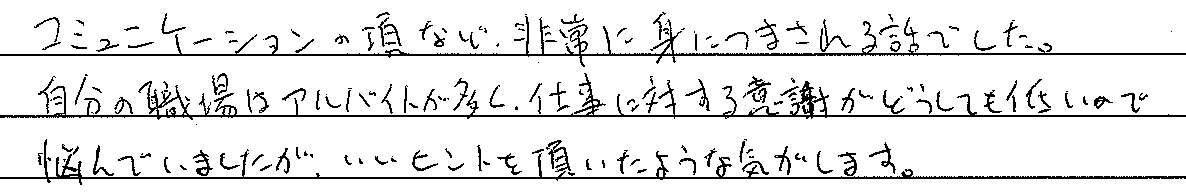 コミュニケーションの項など、非常に身につまされる話でした。
自分の職場はアルバイトが多く、仕事に対する意識がどうしても低いので
悩んでいましたが、いいヒントを頂いたような気がします。